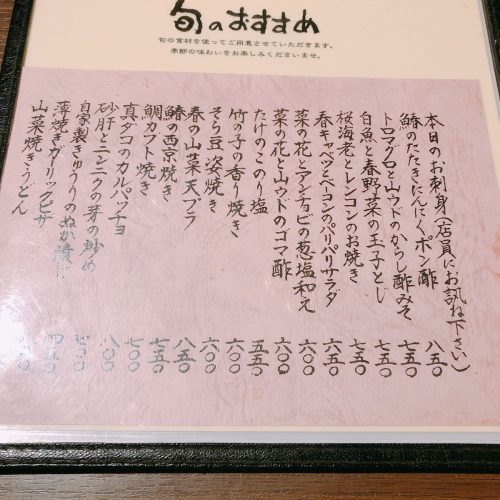 旬のおすすめ
旬の食材を使ってご用意させていただきます。
季節の味わいをお楽しみくださいませ。
本日のお刺身(店員にお訊ね下さい)
鰆のたたきにんにくポン酢
トロマグロと山ウドのからし酢みそ
白魚と春野菜の玉子とじ
桜海老とレンコンのお焼き
春キャベツとベーコンのパリパリサラダ
菜の花とアンチョビの葱塩和え
菜の花と山ウドのゴマ酢
たけのこのり塩
竹の子の香り焼き
そら豆姿焼き
春の山菜天ぷら
鰆の西京焼き
鯛カブト焼き
真ダコのカルパッチョ
砂肝とニンニクの芽の炒め
自家製きゅうりのぬか漬け
薄焼きガーリックピザ
山菜焼きうどん
八五〇
七五〇
七五〇
六五〇
六〇〇
六〇〇
六〇〇
五五〇
六〇〇
六〇〇
八五〇
七五〇
七〇〇
八〇〇